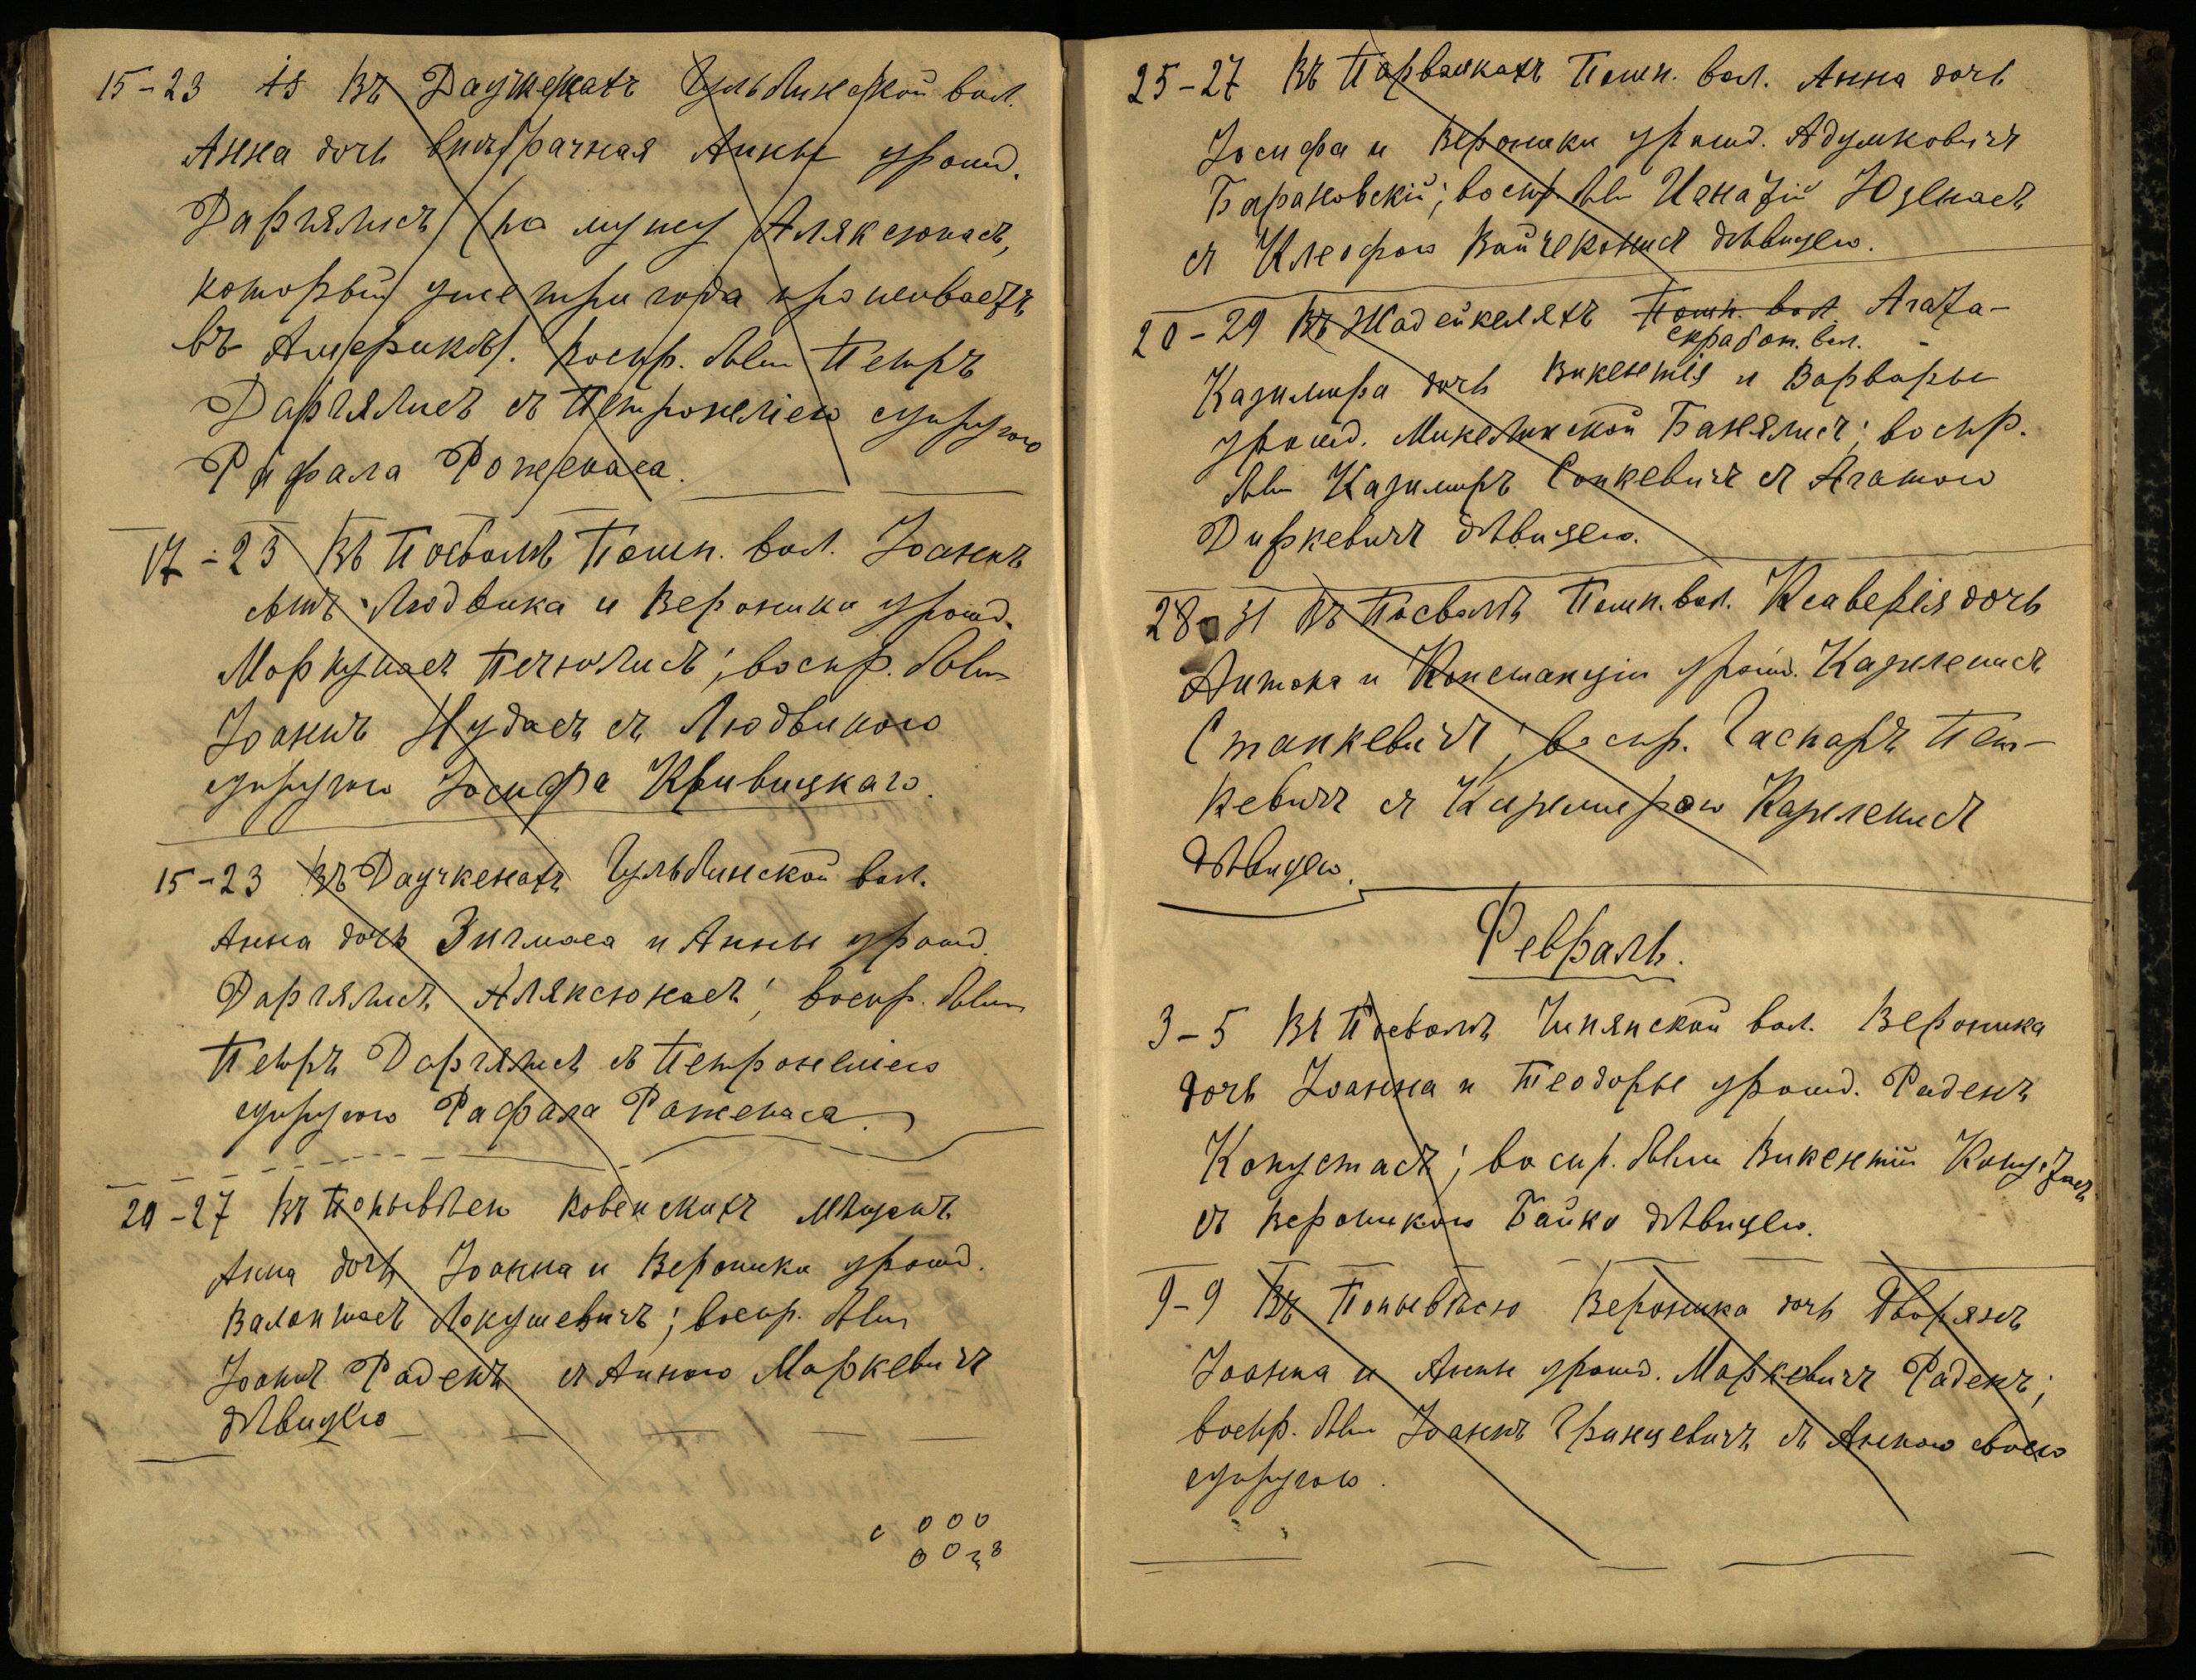 15-23 15 Въ Даучкенахъ Гульбинской вол.
Анна дочь внѣбрачная Анны урожд.
Даргялисъ (по мужу Аляксюнасъ,
который уже три года проживаетъ
въ Америкѣ). Воспр. были Петръ
Даргялисъ съ Петронелiею супругою
Рафала Роженаса.
17-23 Въ Посволѣ Помп. вол. Іоаннъ
сынъ Людвика и Вероники урожд.
Моркунасъ Печюлисъ; воспр. были
Іоаннъ Нудасъ съ Людвикою
супругою Іосифа Кривицкаго.
15-23 Въ Даучкенахъ Гульбинской вол.
Анна дочь Зигмаса и Анны урожд.
Даргялисъ Аляксюнасъ; воспр. были
Петръ Даргялисъ съ Петронелiею
супругою Рафала Роженаса.
20-27 Въ Попывѣсю Ковенскихъ мѣщанъ
Анна дочь Іоанна и Вероники урожд.
Валантасъ Янушевичъ; воспр. были
Іоаннъ Раденъ съ Анною Маркевичъ
дѣвицею
25-27 Въ Парвалкахъ Помп. вол. Анна дочь
Іосифа и Вероники урожд. Адумковичъ
Барановскій; воспр. были Игнатій Юденасъ
съ Клеофою Вайчеконисъ дѣвицею.
20-29 Въ Жадейкеляхъ Помп. вол Агата-
скрабон. вол.
Казимира дочь Викентія и Варвары
урожд. Микелинской Банялисъ; воспр.
были Казимиръ Санкевичъ съ Агатою
Диркевичъ дѣвицею.
28-31 Въ Посволѣ Помп. вол. Ксаверія дочь
Антона и Констанціи урожд. Казиленисъ
Станкевичъ; воспр. Гаспаръ Пет-
кевичъ съ Казимирою Казиленисъ
дѣвицею.
Февраль.
3-5 Въ Посволѣ Чипянской вол. Вероника
дочь Іоанна и Теодоры урожд. Раденъ
Копустасъ; воспр. были Викентій Копустасъ
съ Вероникою Байко дѣвицею.
9-9 Въ Попывѣсю Вероника дочь Дворянъ
Іоанна и Анны урожд. Маркевичъ Раденъ;
воспр. были Іоаннъ Гринцевичъ съ Анною своею
супругою.